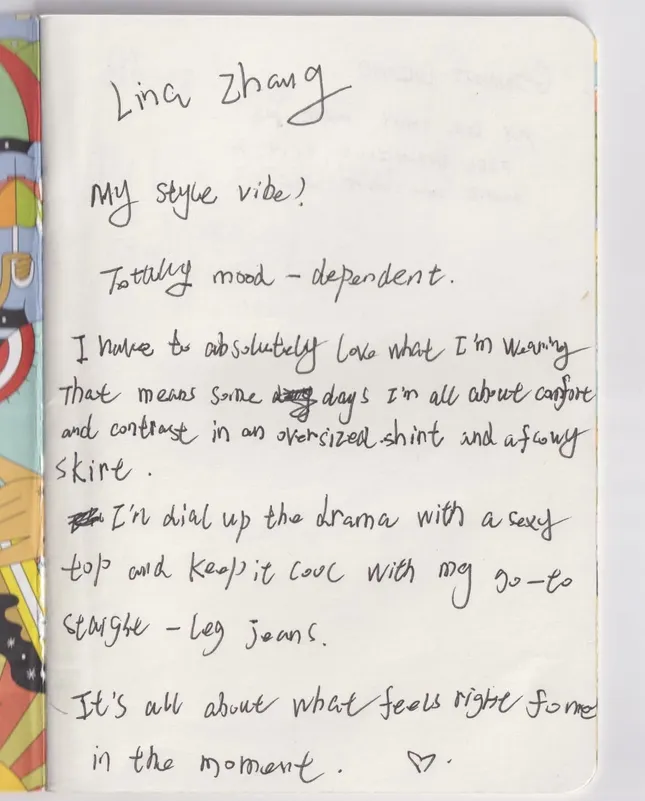 Lina Zhang
My style vibe?
Totally mood - dependent.
I have to absolutely love what I'm wearing
That means some days I'm all about comfort
and contrast in an oversized shirt and a flowy
skirt.
I'm dial up the drama with a sexy
top and keep it cool with my go-to
staight - leg jeans.
It's all about what feels right for me
in the moment. ♡.